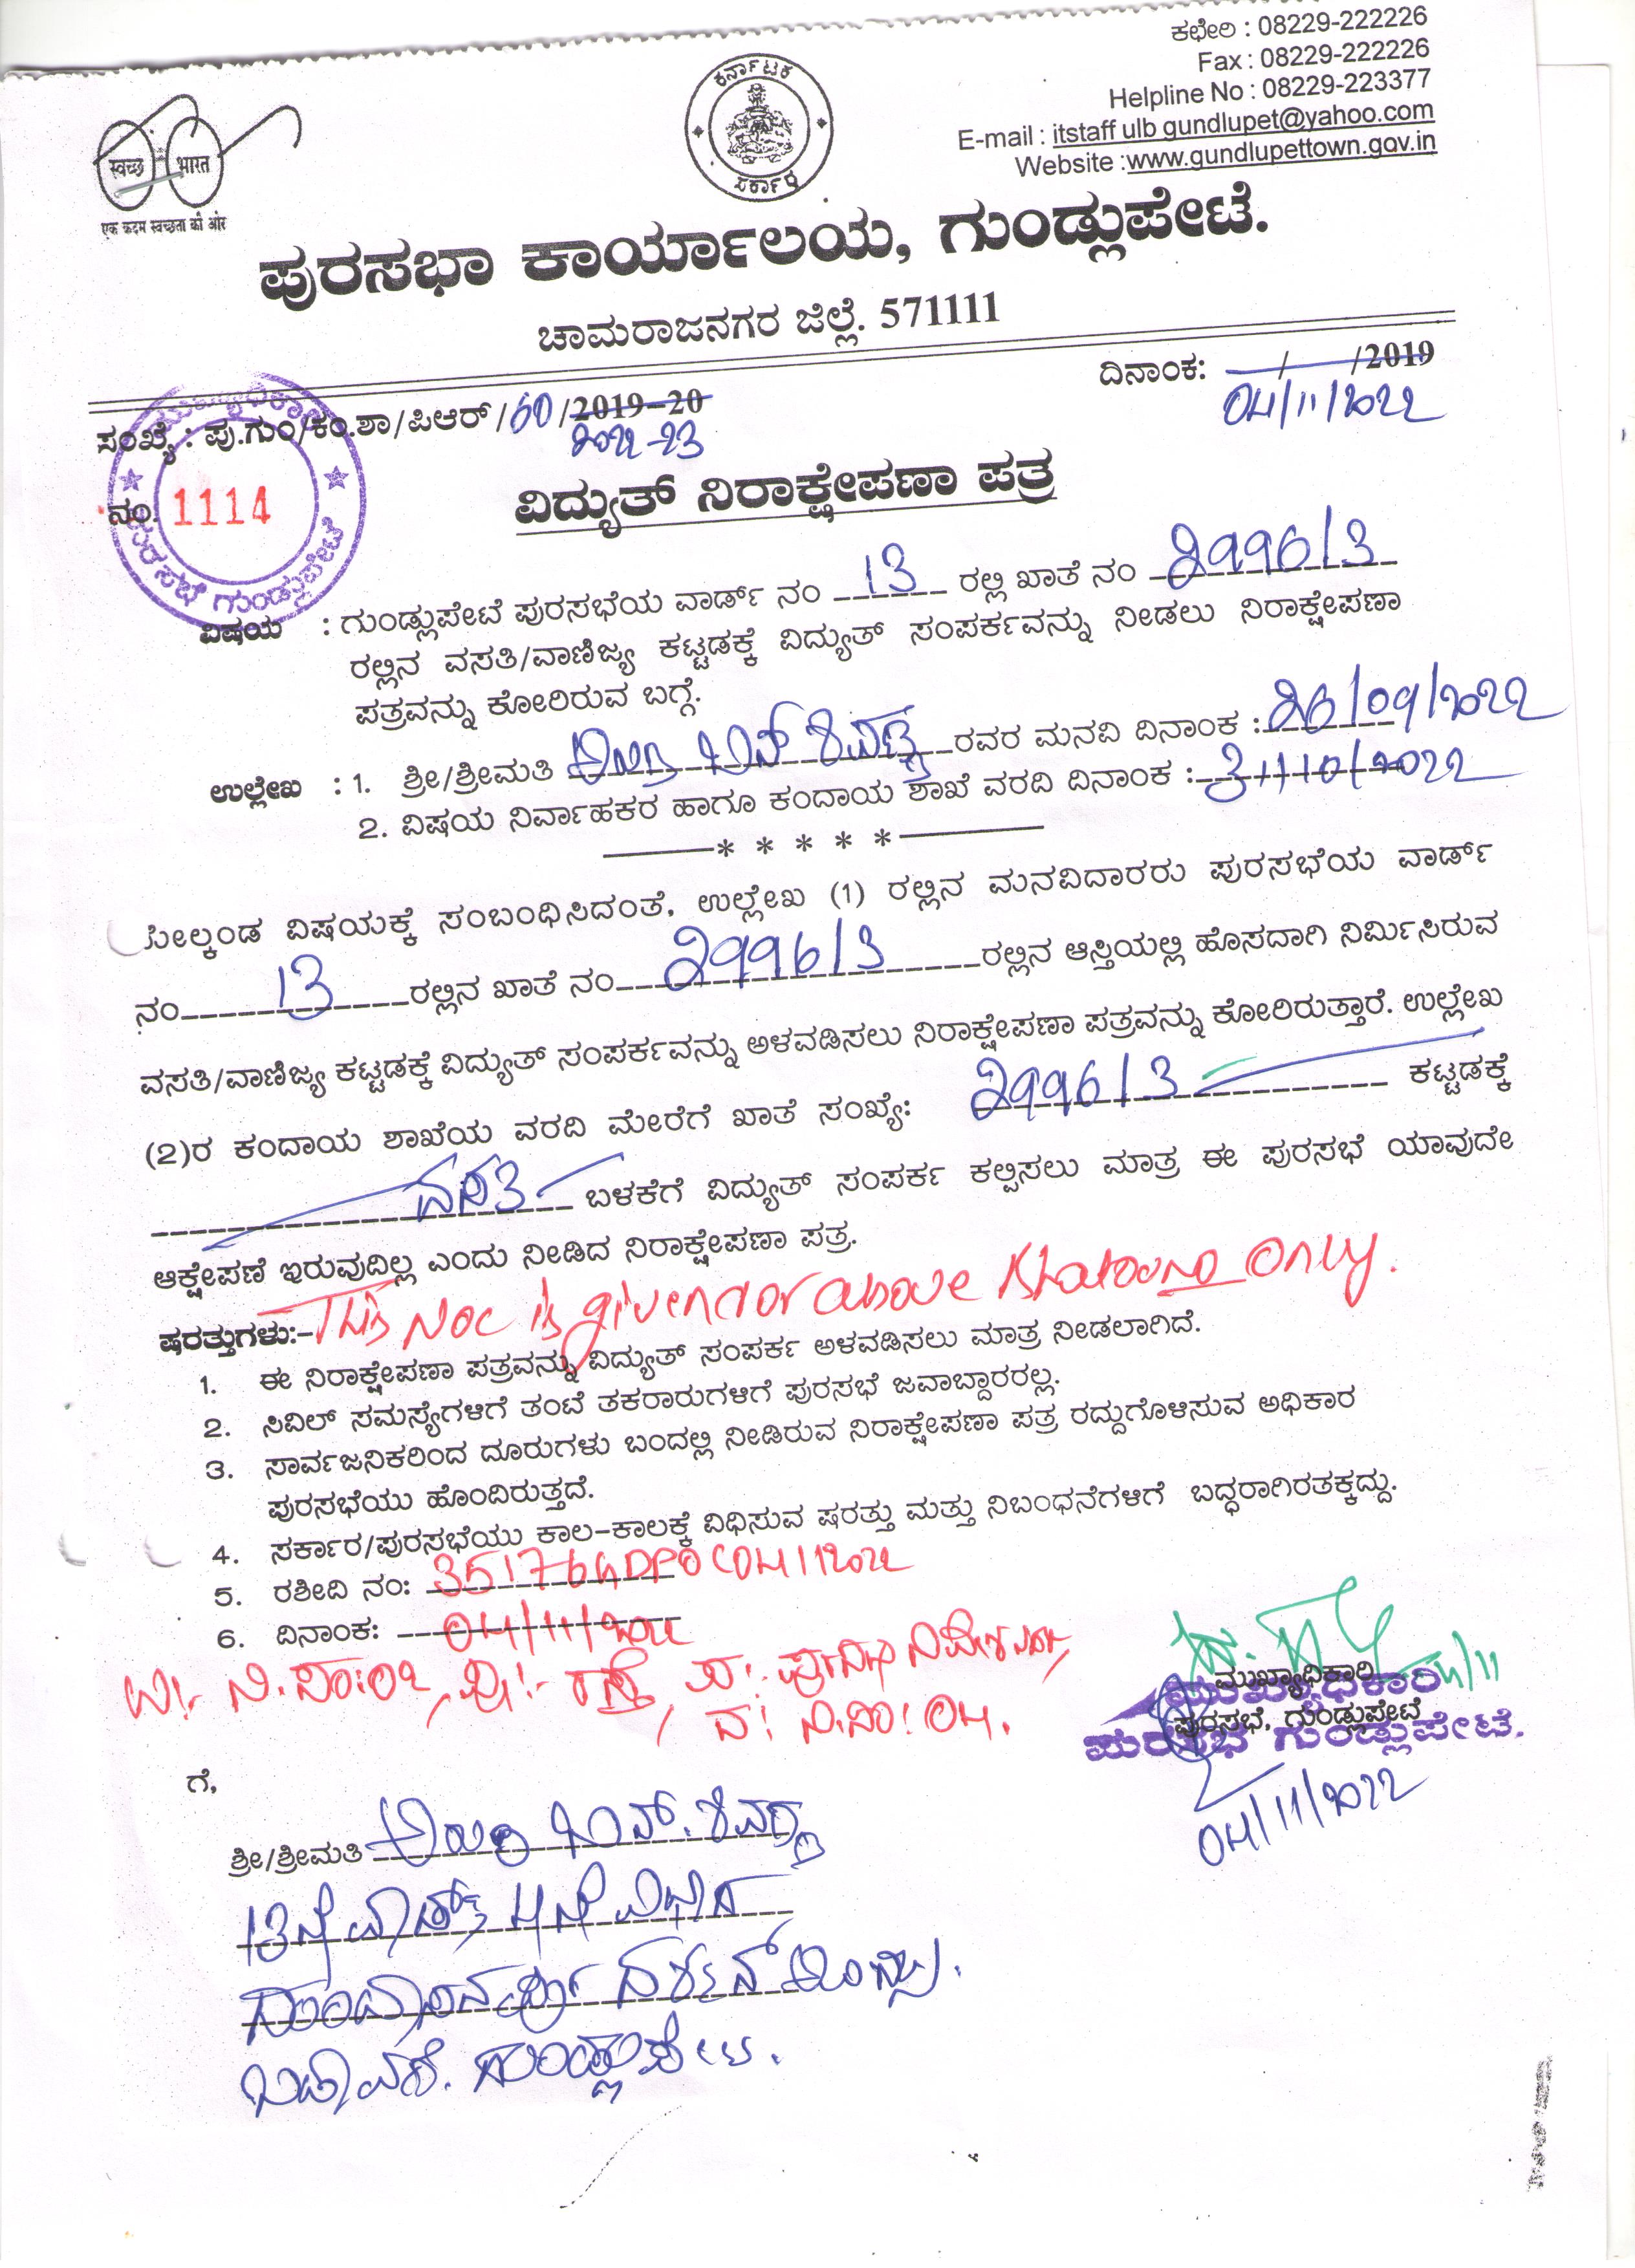 ಕಛೇರಿ : 08229-222226
Fax : 08229-222226
Helpline No : 08229-223377
E-mail : itstaff ulb gundlupet@yahoo.com
Website :www.gundlupettown.gov.in
ಕರ್ನಾಟಕ
ಸರ್ಕಾರ
स्वच्छ भारत
एक कदम स्वच्छता की ओर
ಪುರಸಭಾ ಕಾರ್ಯಾಲಯ, ಗುಂಡ್ಲುಪೇಟೆ.
ಚಾಮರಾಜನಗರ ಜಿಲ್ಲೆ. 571111
ದಿನಾಂಕ: / /2019
04/11/2022
ಸಂಖ್ಯೆ : ಪು.ಗುಂ/ಕಂ.ಶಾ/ಪಿಆರ್/60/2019-20
2022-23
ನಂ. 1114
ಪುರಸಭೆ ಗುಂಡ್ಲುಪೇಟೆ
ವಿದ್ಯುತ್ ನಿರಾಕ್ಷೇಪಣಾ ಪತ್ರ
ವಿಷಯ : ಗುಂಡ್ಲುಪೇಟೆ ಪುರಸಭೆಯ ವಾರ್ಡ್ ನಂ 13 ರಲ್ಲಿ ಖಾತೆ ನಂ 2996/3
ರಲ್ಲಿನ ವಸತಿ/ವಾಣಿಜ್ಯ ಕಟ್ಟಡಕ್ಕೆ ವಿದ್ಯುತ್ ಸಂಪರ್ಕವನ್ನು ನೀಡಲು ನಿರಾಕ್ಷೇಪಣಾ
ಪತ್ರವನ್ನು ಕೋರಿರುವ ಬಗ್ಗೆ.
ಉಲ್ಲೇಖ : 1. ಶ್ರೀ/ಶ್ರೀಮತಿ ರವರ ಮನವಿ ದಿನಾಂಕ : 26/09/2022
2. ವಿಷಯ ನಿರ್ವಾಹಕರ ಹಾಗೂ ಕಂದಾಯ ಶಾಖೆ ವರದಿ ದಿನಾಂಕ : 31/10/2022
* * * * *
ಮೇಲ್ಕಂಡ ವಿಷಯಕ್ಕೆ ಸಂಬಂಧಿಸಿದಂತೆ, ಉಲ್ಲೇಖ (1) ರಲ್ಲಿನ ಮನವಿದಾರರು ಪುರಸಭೆಯ ವಾರ್ಡ್
ನಂ 13 ರಲ್ಲಿನ ಖಾತೆ ನಂ 2996/3 ರಲ್ಲಿನ ಆಸ್ತಿಯಲ್ಲಿ ಹೊಸದಾಗಿ ನಿರ್ಮಿಸಿರುವ
ವಸತಿ/ವಾಣಿಜ್ಯ ಕಟ್ಟಡಕ್ಕೆ ವಿದ್ಯುತ್ ಸಂಪರ್ಕವನ್ನು ಅಳವಡಿಸಲು ನಿರಾಕ್ಷೇಪಣಾ ಪತ್ರವನ್ನು ಕೋರಿರುತ್ತಾರೆ. ಉಲ್ಲೇಖ
(2)ರ ಕಂದಾಯ ಶಾಖೆಯ ವರದಿ ಮೇರೆಗೆ ಖಾತೆ ಸಂಖ್ಯೆ: 2996/3 ಕಟ್ಟಡಕ್ಕೆ
ವಸತಿ ಬಳಕೆಗೆ ವಿದ್ಯುತ್ ಸಂಪರ್ಕ ಕಲ್ಪಿಸಲು ಮಾತ್ರ ಈ ಪುರಸಭೆ ಯಾವುದೇ
ಆಕ್ಷೇಪಣೆ ಇರುವುದಿಲ್ಲ ಎಂದು ನೀಡಿದ ನಿರಾಕ್ಷೇಪಣಾ ಪತ್ರ.
This NOC is given for above Khatha no only.
ಷರತ್ತುಗಳು:-
1. ಈ ನಿರಾಕ್ಷೇಪಣಾ ಪತ್ರವನ್ನು ವಿದ್ಯುತ್ ಸಂಪರ್ಕ ಅಳವಡಿಸಲು ಮಾತ್ರ ನೀಡಲಾಗಿದೆ.
2. ಸಿವಿಲ್ ಸಮಸ್ಯೆಗಳಿಗೆ ತಂಟೆ ತಕರಾರುಗಳಿಗೆ ಪುರಸಭೆ ಜವಾಬ್ದಾರರಲ್ಲ.
3. ಸಾರ್ವಜನಿಕರಿಂದ ದೂರುಗಳು ಬಂದಲ್ಲಿ ನೀಡಿರುವ ನಿರಾಕ್ಷೇಪಣಾ ಪತ್ರ ರದ್ದುಗೊಳಿಸುವ ಅಧಿಕಾರ
ಪುರಸಭೆಯು ಹೊಂದಿರುತ್ತದೆ.
4. ಸರ್ಕಾರ/ಪುರಸಭೆಯು ಕಾಲ-ಕಾಲಕ್ಕೆ ವಿಧಿಸುವ ಷರತ್ತು ಮತ್ತು ನಿಬಂಧನೆಗಳಿಗೆ ಬದ್ಧರಾಗಿರತಕ್ಕದ್ದು.
5. ರಶೀದಿ ನಂ:
6. ದಿನಾಂಕ: 04/11/2022
ಮುಖ್ಯಾಧಿಕಾರಿ
ಪುರಸಭೆ, ಗುಂಡ್ಲುಪೇಟೆ
ಮುಖ್ಯಾಧಿಕಾರಿ
ಪುರಸಭೆ ಗುಂಡ್ಲುಪೇಟೆ.
04/11/2022
ಗೆ,
ಶ್ರೀ/ಶ್ರೀಮತಿ
13ನೇ ವಾರ್ಡ್ 4ನೇ ವಿಭಾಗ
ಗುಂಡ್ಲುಪೇಟೆ.